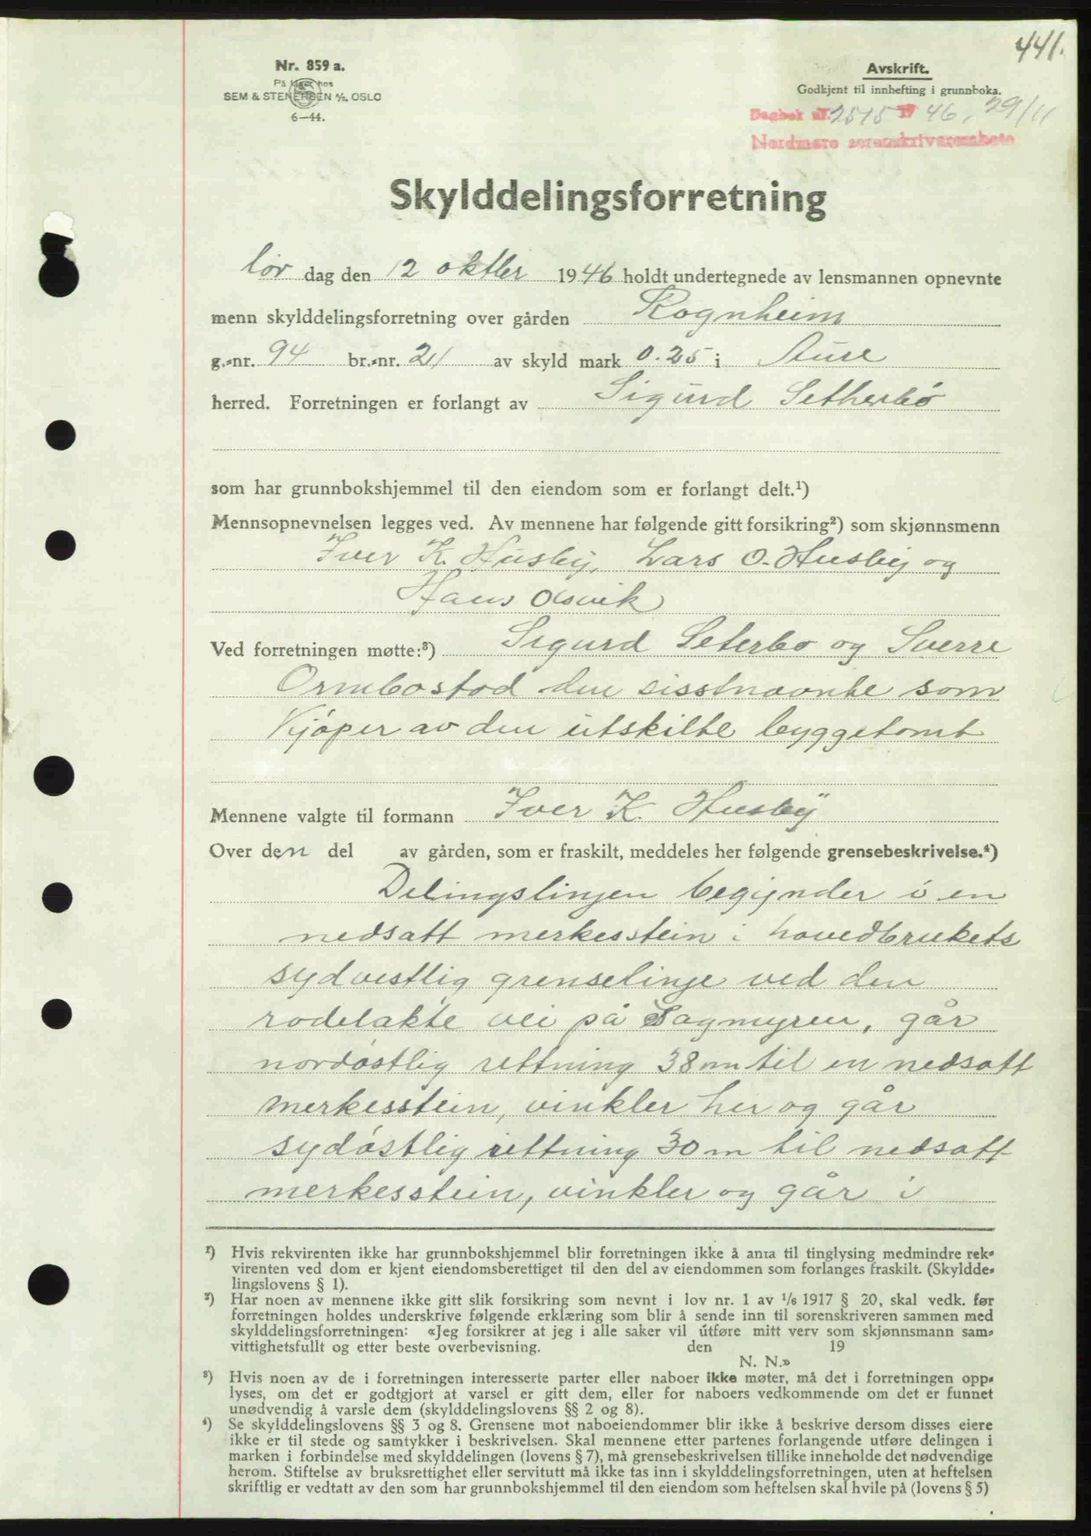 441.
Nr. 859 a.
På lager hos
SEM & STENERSEN A/S, OSLO
6—44.
Avskrift.
Godkjent til innhefting i grunnboka.
Dagbok nr. 2515 19 46, 29/11
Nordmøre sorenskriverembete
Skylddelingsforretning
lør dag den 12 oktber 1946 holdt undertegnede av lensmannen opnevnte
menn skylddelingsforretning over gården Rognheim
g.-nr. 94 br.-nr. 21 av skyld mark 0.25 i Aure
herred. Forretningen er forlangt av Sigurd Setherbö
som har grunnbokshjemmel til den eiendom som er forlangt delt.¹)
Mennsopnevnelsen legges ved. Av mennene har følgende gitt forsikring²) som skjønnsmenn
Iver K. Husby, Lars O. Husby og
Hans Odsvik
Ved forretningen møtte:³) Sigurd Seterbo og Sverre
Ormbostad den sisstnævnte som
Kjöper av den utskilte byggetomt
Mennene valgte til formann Iver K. Husby
Over den del av gården, som er fraskilt, meddeles her følgende grensebeskrivelse.⁴)
Delingslinjen begynder i en
nedsatt merkesstein i hovedbrukets
sydvestlig grenselinje ved den
rodelakte vei på Sagmyren, går
nordöstlig rettning 38 m til en nedsatt
merkesstein, vinkler her og går
sydöstlig rettning 30 m til nedsatt
merkesstein, vinkler og går i
¹) Hvis rekvirenten ikke har grunnbokshjemmel blir forretningen ikke å anta til tinglysing medmindre rek-
virenten ved dom er kjent eiendomsberettiget til den del av eiendommen som forlanges fraskilt. (Skyldde-
lingslovens § 1).
²) Har noen av mennene ikke gitt slik forsikring som nevnt i lov nr. 1 av 1/6 1917 § 20, skal vedk. før
forretningen holdes underskrive følgende erklæring som blir å sende inn til sorenskriveren sammen med
skylddelingsforretningen: «Jeg forsikrer at jeg i alle saker vil utføre mitt verv som skjønnsmann sam-
vittighetsfullt og etter beste overbevisning. den 19
N. N.»
³) Hvis noen av de i forretningen interesserte parter eller naboer ikke møter, må det i forretningen opp-
lyses, om det er godtgjort at varsel er gitt dem, eller for naboers vedkommende om det er funnet
unødvendig å varsle dem (skylddelingslovens §§ 2 og 8).
⁴) Se skylddelingslovens §§ 3 og 8. Grensene mot naboeiendommer blir ikke å beskrive dersom disses eiere
ikke er til stede og samtykker i beskrivelsen. Skal mennene etter partenes forlangende utføre delingen i
marken i forbindelse med skylddelingen (lovens § 7), må grensebeskrivelsen tillike inneholde det nødvendige
herom. Stiftelse av bruksrettighet eller servitutt må ikke tas inn i skylddelingsforretningen, uten at heftelsen
skriftlig er vedtatt av den som har grunnbokshjemmel til den eiendom som heftelsen skal hvile på (lovens § 5)